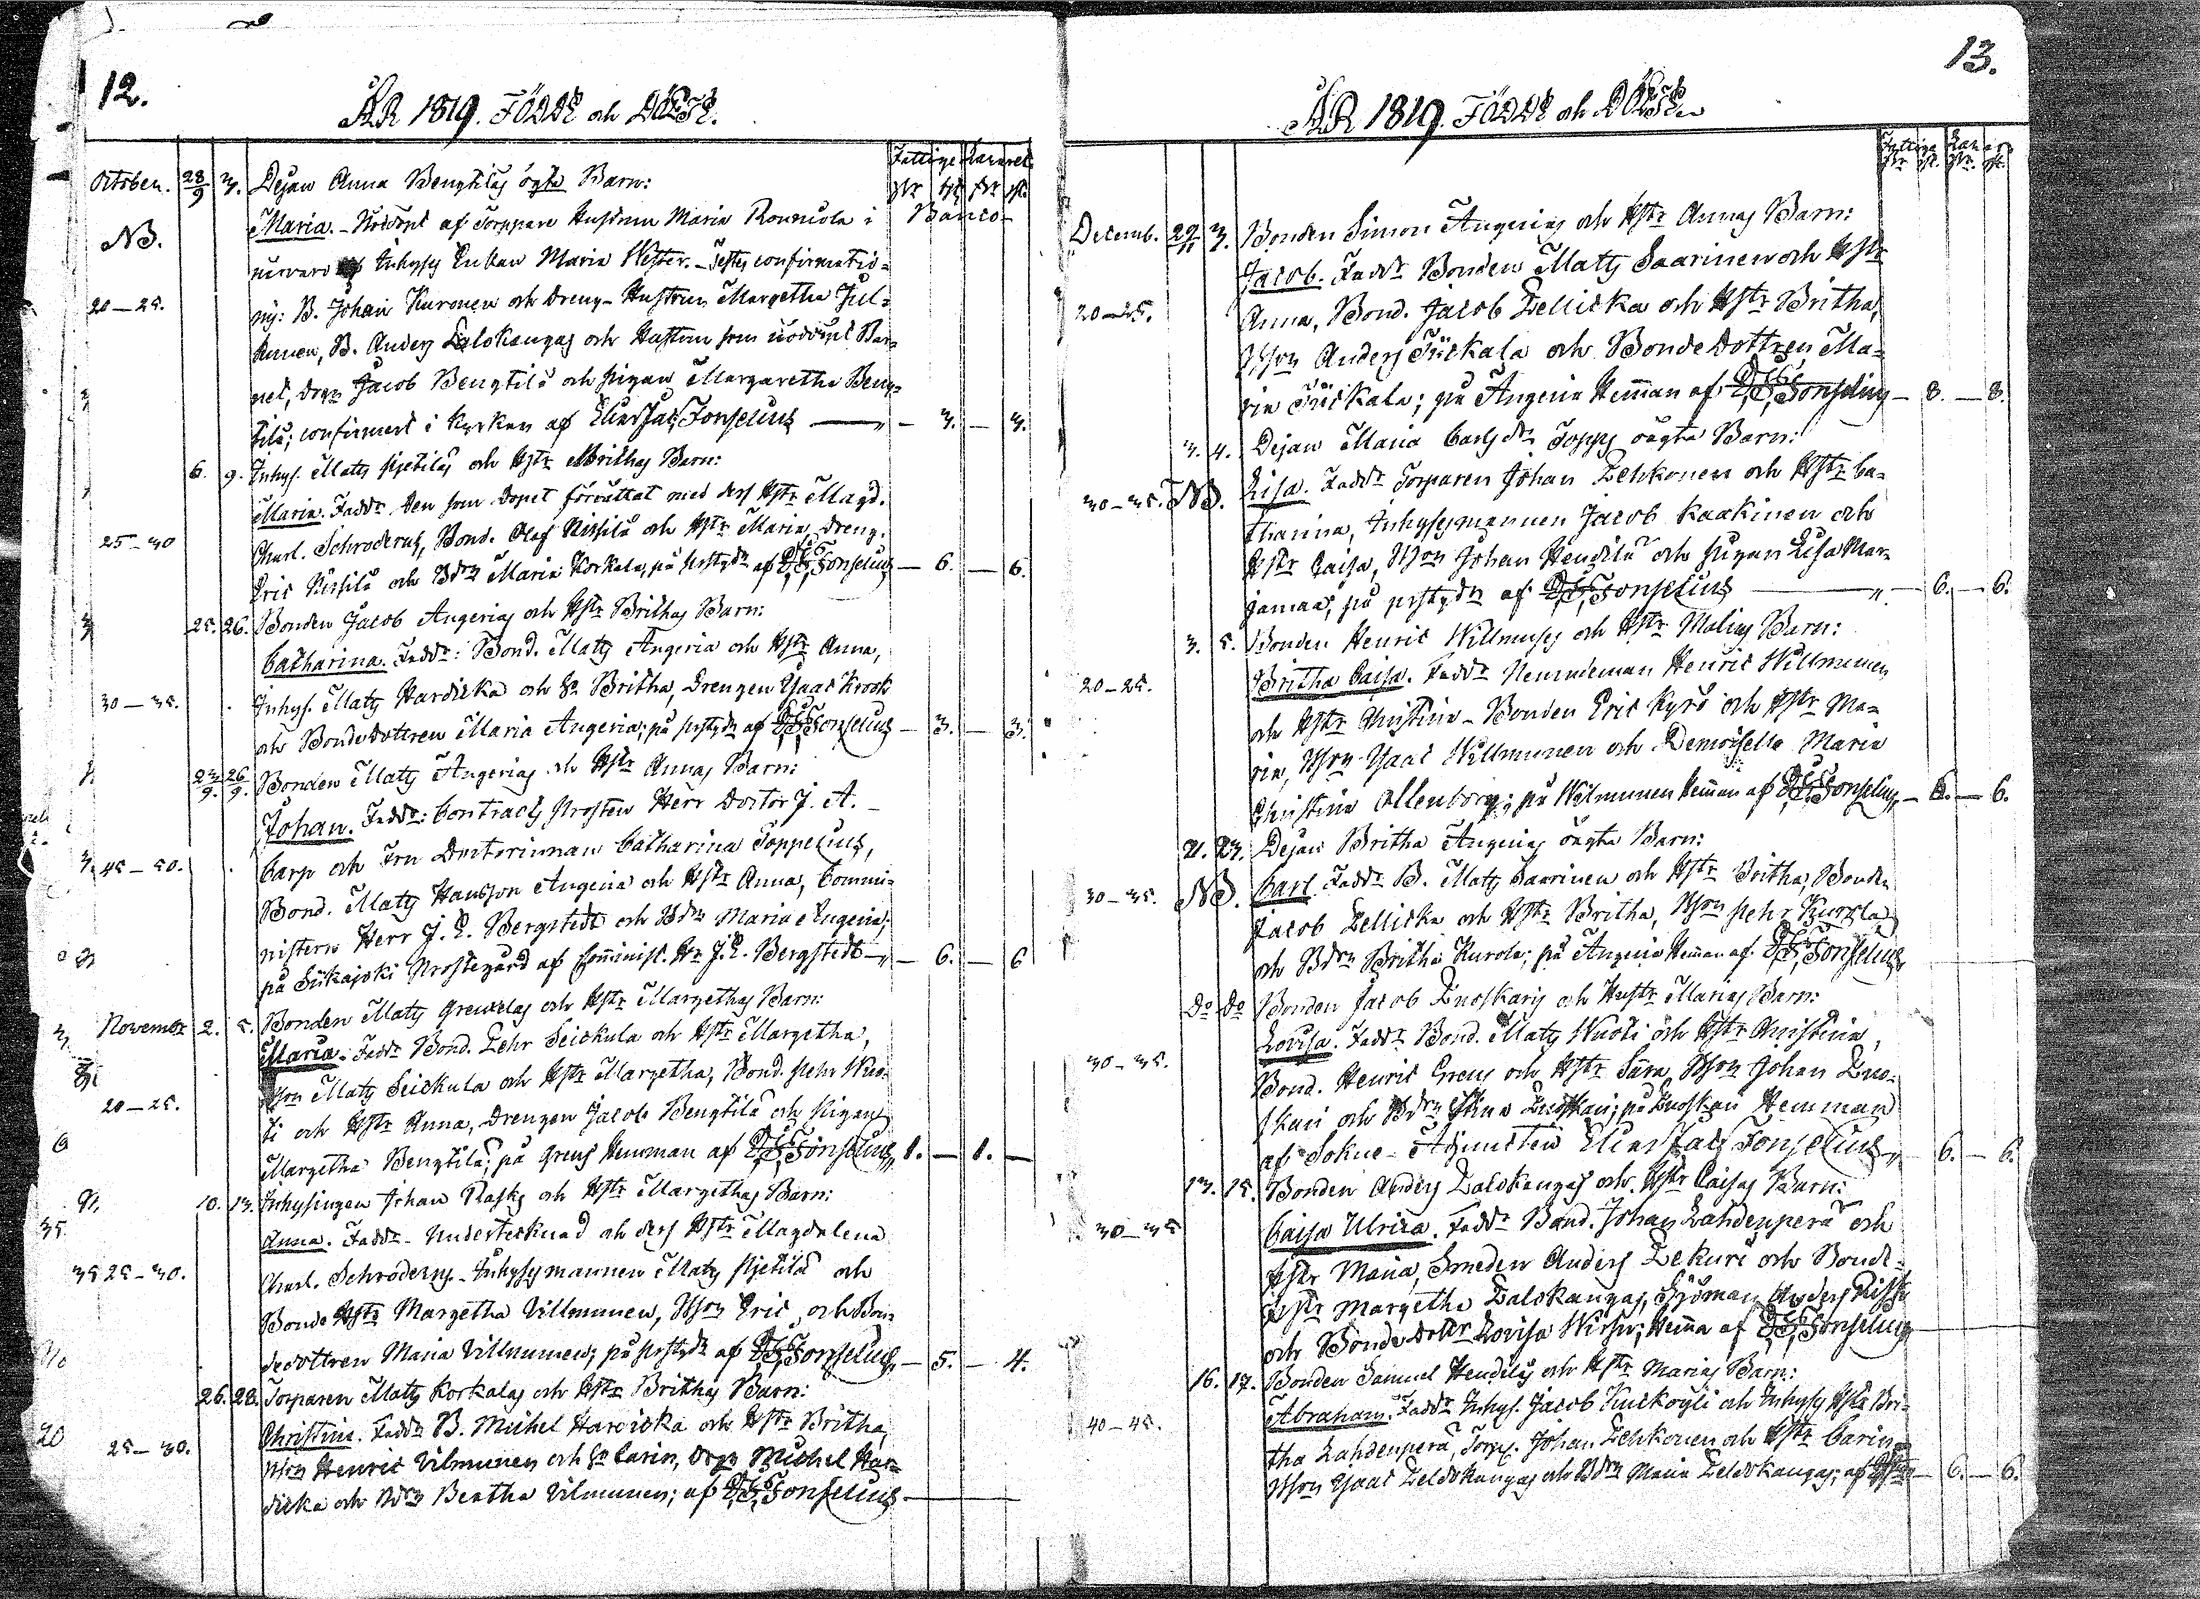 12.
ÅR 1819. FÖDDE och DÖPTE.
Fattige Lazaret
Banco
October. 28/9 3. Dejan Anna Bengtilas ögta Barn:
NB. Maria. - Nöddöpt af Torppare Hustrun Maria Ronnola i
närvaro af Inhyses Enkan Maria Wester. - Testes confirmatio-
20-25. nis: B. Johan Kuronen och Dreng-Hustrun Margetha Jul-
kunen, B. Anders Lalokangas och Hustrun som nöddöpt Bar-
net, Drgn Jacob Bengtilä och pigan Margaretha Beng-
tilä; confirmerd i Kyrkan af Elias Jac. Fonselius — 3. — 3.
6. 9. Inhys. Matts Pjetiläs och Hstr Brithas Barn:
Maria. Faddr Den som Dopet förrättat med dess Hstr Magd.
25-30 Charl. Schroderus, Bond. Olof Niskilä och Hstr Maria, Dreng.
Eric Niskilä och Bdrn Maria Korkala, på prstgdn af Fonselius — 6. — 6.
25. 26. Bonden Jacob Angerias och Hstr Brithas Barn:
Catharina. Faddr: Bond. Matts Angeria och Hstr Anna,
30-35. Inhys. Matts Hardicka och Hstr Britha, Drengen Isaac Krook
och Bondedottren Maria Angeria; på prstgdn af Fonselius — 3. — 3.
23/9. 26/9. Bonden Matts Angerias och Hstr Annas Barn:
Johan. Faddr: Contracts Prosten Herr Doctor J. A.
45-50. Carp och Fru Doctorinnan Catharina Toppelius,
Bond. Matts Hansson Angeria och Hstr Anna, Commi-
nistern Herr J. E. Bergstedt och Bdrn Maria Angeria;
på Siikajoki Prostegård af Comminist. Hr J. E. Bergstedt — 6. — 6
Novembr 2. 5. Bonden Matts Greuselas och Hstr Margethas Barn:
Maria. Faddr Bond. Pehr Seickula och Hstr Margetha,
Bson Matts Seickula och Hstr Margetha, Bond. Pehr Wuo-
20-25. ti och Hstr Anna, Drengen Jacob Bengtilä och Pigan
Margetha Bengtilä; på Greus Hemman af Fonselius 1. — 1. —
10. 13. Inhysingen Johan Rasks och Hstr Margethas Barn:
Anna. Faddr. Undertecknad och dess Hstr Magdalena
25-30. Charl. Schroderus - Inhysesmannen Matts Pjetilä och
Bonde Hstr Margetha Villmunen, Bson Eric, och Bon-
dedottren Maria Villmunen; på prstgdn af Fonselius — 5. — 4.
26. 28. Torparen Matts Korkalas och Hstr Brithas Barn:
Christina. Faddr B. Michel Hardicka och Hstr Britha,
25-30. Bson Henric Vilmunen och Hstr Carin, Drgn Michel Har-
dicka och Bdrn Beatha Vilmunen; af Fonselius
13.
ÅR 1819. FÖDDE och DÖPTE.
Fattige Lazaret
Decemb. 29/11 3. Bonden Simon Angerias och Hstr Annas Barn:
Jacob. Faddr Bonden Matts Saarinen och Hstr
20-25. Anna, Bond. Jacob Pellicka och Hstr Britha,
Bson Anders Tückala och Bonde Dottren Ma-
ria Tückala; på Angeria Hemman af Fonselius — 8. — 8.
3. 4. Dejan Maria Carls dr Topps öägta Barn:
30-35. NB. Lisa. Faddr Torparen Johan Lehkonen och Hstr Ca-
tharina, Inhysesmannen Jacob Kaakinen och
Hstr Caisa, Bson Johan Hendilä och pigan Lisa Mar-
jamaa, på prstgdn af Fonselius — 6. — 6.
3. 5. Bonden Henric Willmuses och Hstr Malins Barn:
20-25. Britha Caisa. Faddr Nemndeman Henric Willmunen
och Hstr Christina - Bonden Eric Kyrö och Hstr Ma-
ria, Bson Isaac Willmunen och Demoiselle Maria
Christina Allenborg; på Wilmunen Hemman af Fonselius — 6. — 6.
21. 23. Dejan Britha Angerias öägta Barn:
30-35. NB. Carl. Faddr B. Matts Saarinen och Hstr Britha, Bonden
Jacob Pellicka och Hstr Britha, Bson Pehr Kurola
och Bdrn Britha Kurola; på Angeria Hemman af Fonselius
Do Do Bonden Jacob Luoskaris och Hustr Marias Barn:
Lovisa. Faddr Bond. Matts Wuoti och Hstr Christina,
30-35. Bond. Henric Greus och Hstr Sara, Bson Johan Luo-
skari och Bdrn Stina Luoskari; på Luoskari Hemman
af Sokne-Adjuncten Elias Jac Fonselius — 6. — 6.
13. 15. Bonden Anders Lalokangas och Hstr Caisas Barn:
30-35 Caisa Ulrica. Faddr Bond. Johan Lahdenperä och
Hstr Maria, Smeden Anders Lekuri och Bonde
Hstr Margetha Lalokangas, Sjöman Anders
och Bonde Dottr Lovisa Wirsu; Hemma af Fonselius
16. 17. Bonden Samuel Hendiläs och Hstr Marias Barn:
40-45. Abraham. Faddr Inhys. Jacob Knickoyli och Inhyses Hstr Bri-
tha Lahdenperä, Torp. Johan Lehkonen och Hstr Carin,
Bson Isaac Lelokangas och Bdrn Maria Lelokangas; af — 6. — 6.